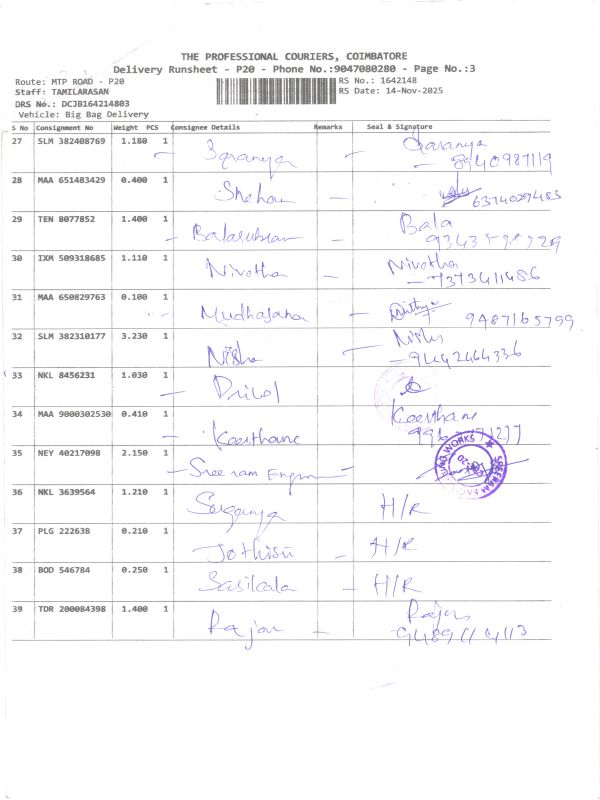 THE PROFESSIONAL COURIERS, COIMBATORE
Delivery Runsheet - P20 - Phone No.:9047080280 - Page No.:3
Route: MTP ROAD - P20
RS No.: 1642148
Staff: TAMILARASAN
RS Date: 14-Nov-2025
DRS No.: DCJB164214803
Vehicle: Big Bag Delivery
S No Consignment No Weight PCS Consignee Details Remarks Seal & Signature
27 SLM 382408769 1.180 1 Saranya - Saranya
8940987119
28 MAA 651483429 0.400 1 -
6374029483
29 TEN 8077852 1.400 1 - Balasubram - Bala
30 IXM 509318685 1.110 1 Nivetha - Nivetha
7373411486
31 MAA 650829763 0.100 1 Nithya
9487165799
32 SLM 382310177 3.230 1 Nisha
9442464336
33 NKL 8456231 1.030 1 - Pricol
34 MAA 9000302530 0.410 1 - Keerthane Keerthane
35 NEY 40217098 2.150 1 - Sree ram
SREERAM
WORKS
36 NKL 3639564 1.210 1 H/R
37 PLG 222638 0.210 1 - H/R
38 BOD 546784 0.250 1 Sasikala - H/R
39 TDR 200084398 1.400 1 Rajan - Rajan